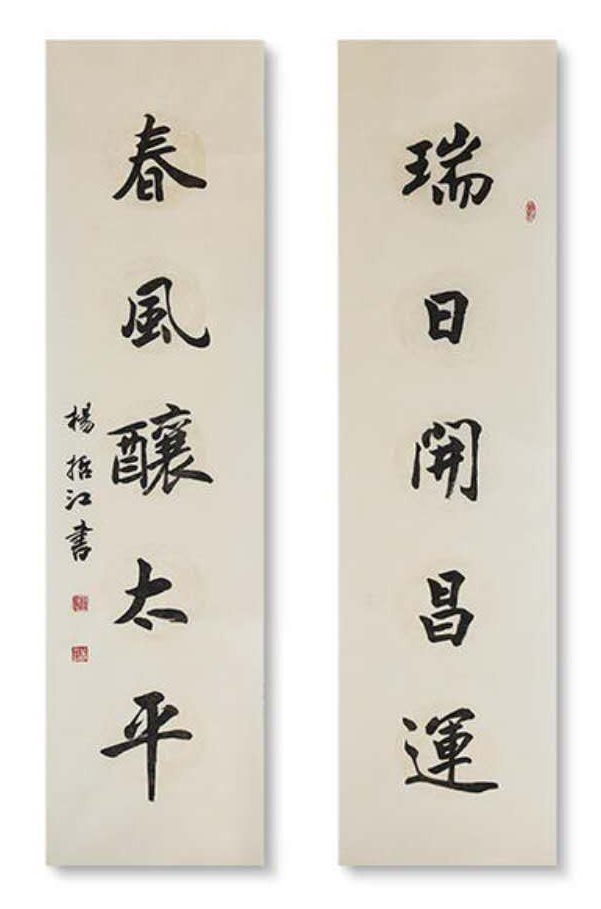 瑞日開昌運
春風釀太平
楊括江書